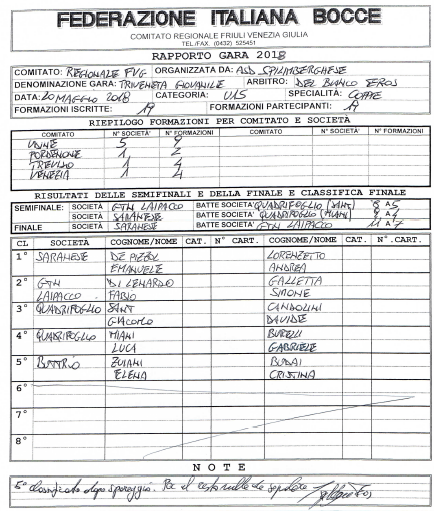 FEDERAZIONE ITALIANA BOCCE
COMITATO REGIONALE FRIULI VENEZIA GIULIA
TEL./FAX. (0432) 525451
RAPPORTO GARA 2018
COMITATO: REGIONALE FVG ORGANIZZATA DA: ASD SPILIMBERGHESE
DENOMINAZIONE GARA: TRIVENETA GIOVANILE ARBITRO: DEL BIANCO EROS
DATA: 20 MAGGIO 2018 CATEGORIA: U15 SPECIALITÀ: COPPIE
FORMAZIONI ISCRITTE: 19 FORMAZIONI PARTECIPANTI: 19
RIEPILOGO FORMAZIONI PER COMITATO E SOCIETÀ
COMITATO N° SOCIETA' N° FORMAZIONI COMITATO N° SOCIETA' N° FORMAZIONI
UDINE 5 9
PORDENONE 1 2
TREVISO 1 4
VENEZIA 1 4
RISULTATI DELLE SEMIFINALI E DELLA FINALE E CLASSIFICA FINALE
SEMIFINALE: SOCIETÀ GTN LAIPACCO BATTE SOCIETA' QUADRIFOGLIO (SANT) 8 A 5
SOCIETÀ SARANESE BATTE SOCIETA' QUADRIFOGLIO (MIANI) 9 A 4
FINALE SOCIETÀ SARANESE BATTE SOCIETA' GTN LAIPACCO 11 A 7
CL SOCIETÀ COGNOME/NOME CAT. N° CART. COGNOME/NOME CAT. N° CART.
1° SARANESE DE PIZZOL LORENZETTO
EMANUELE ANDREA
2° GTN DI LENARDO GALLETTA
LAIPACCO FABIO SIMONE
3° QUADRIFOGLIO SANT CANDOLINI
GIACOMO DAVIDE
4° QUADRIFOGLIO MIANI BURELLI
LUCA GABRIELE
5° BUTTRIO ZUIANI BUDAI
ELENA CRISTINA
6°
7°
8°
NOTE
5° classificato dopo spareggio. Per il resto nulla da segnalare